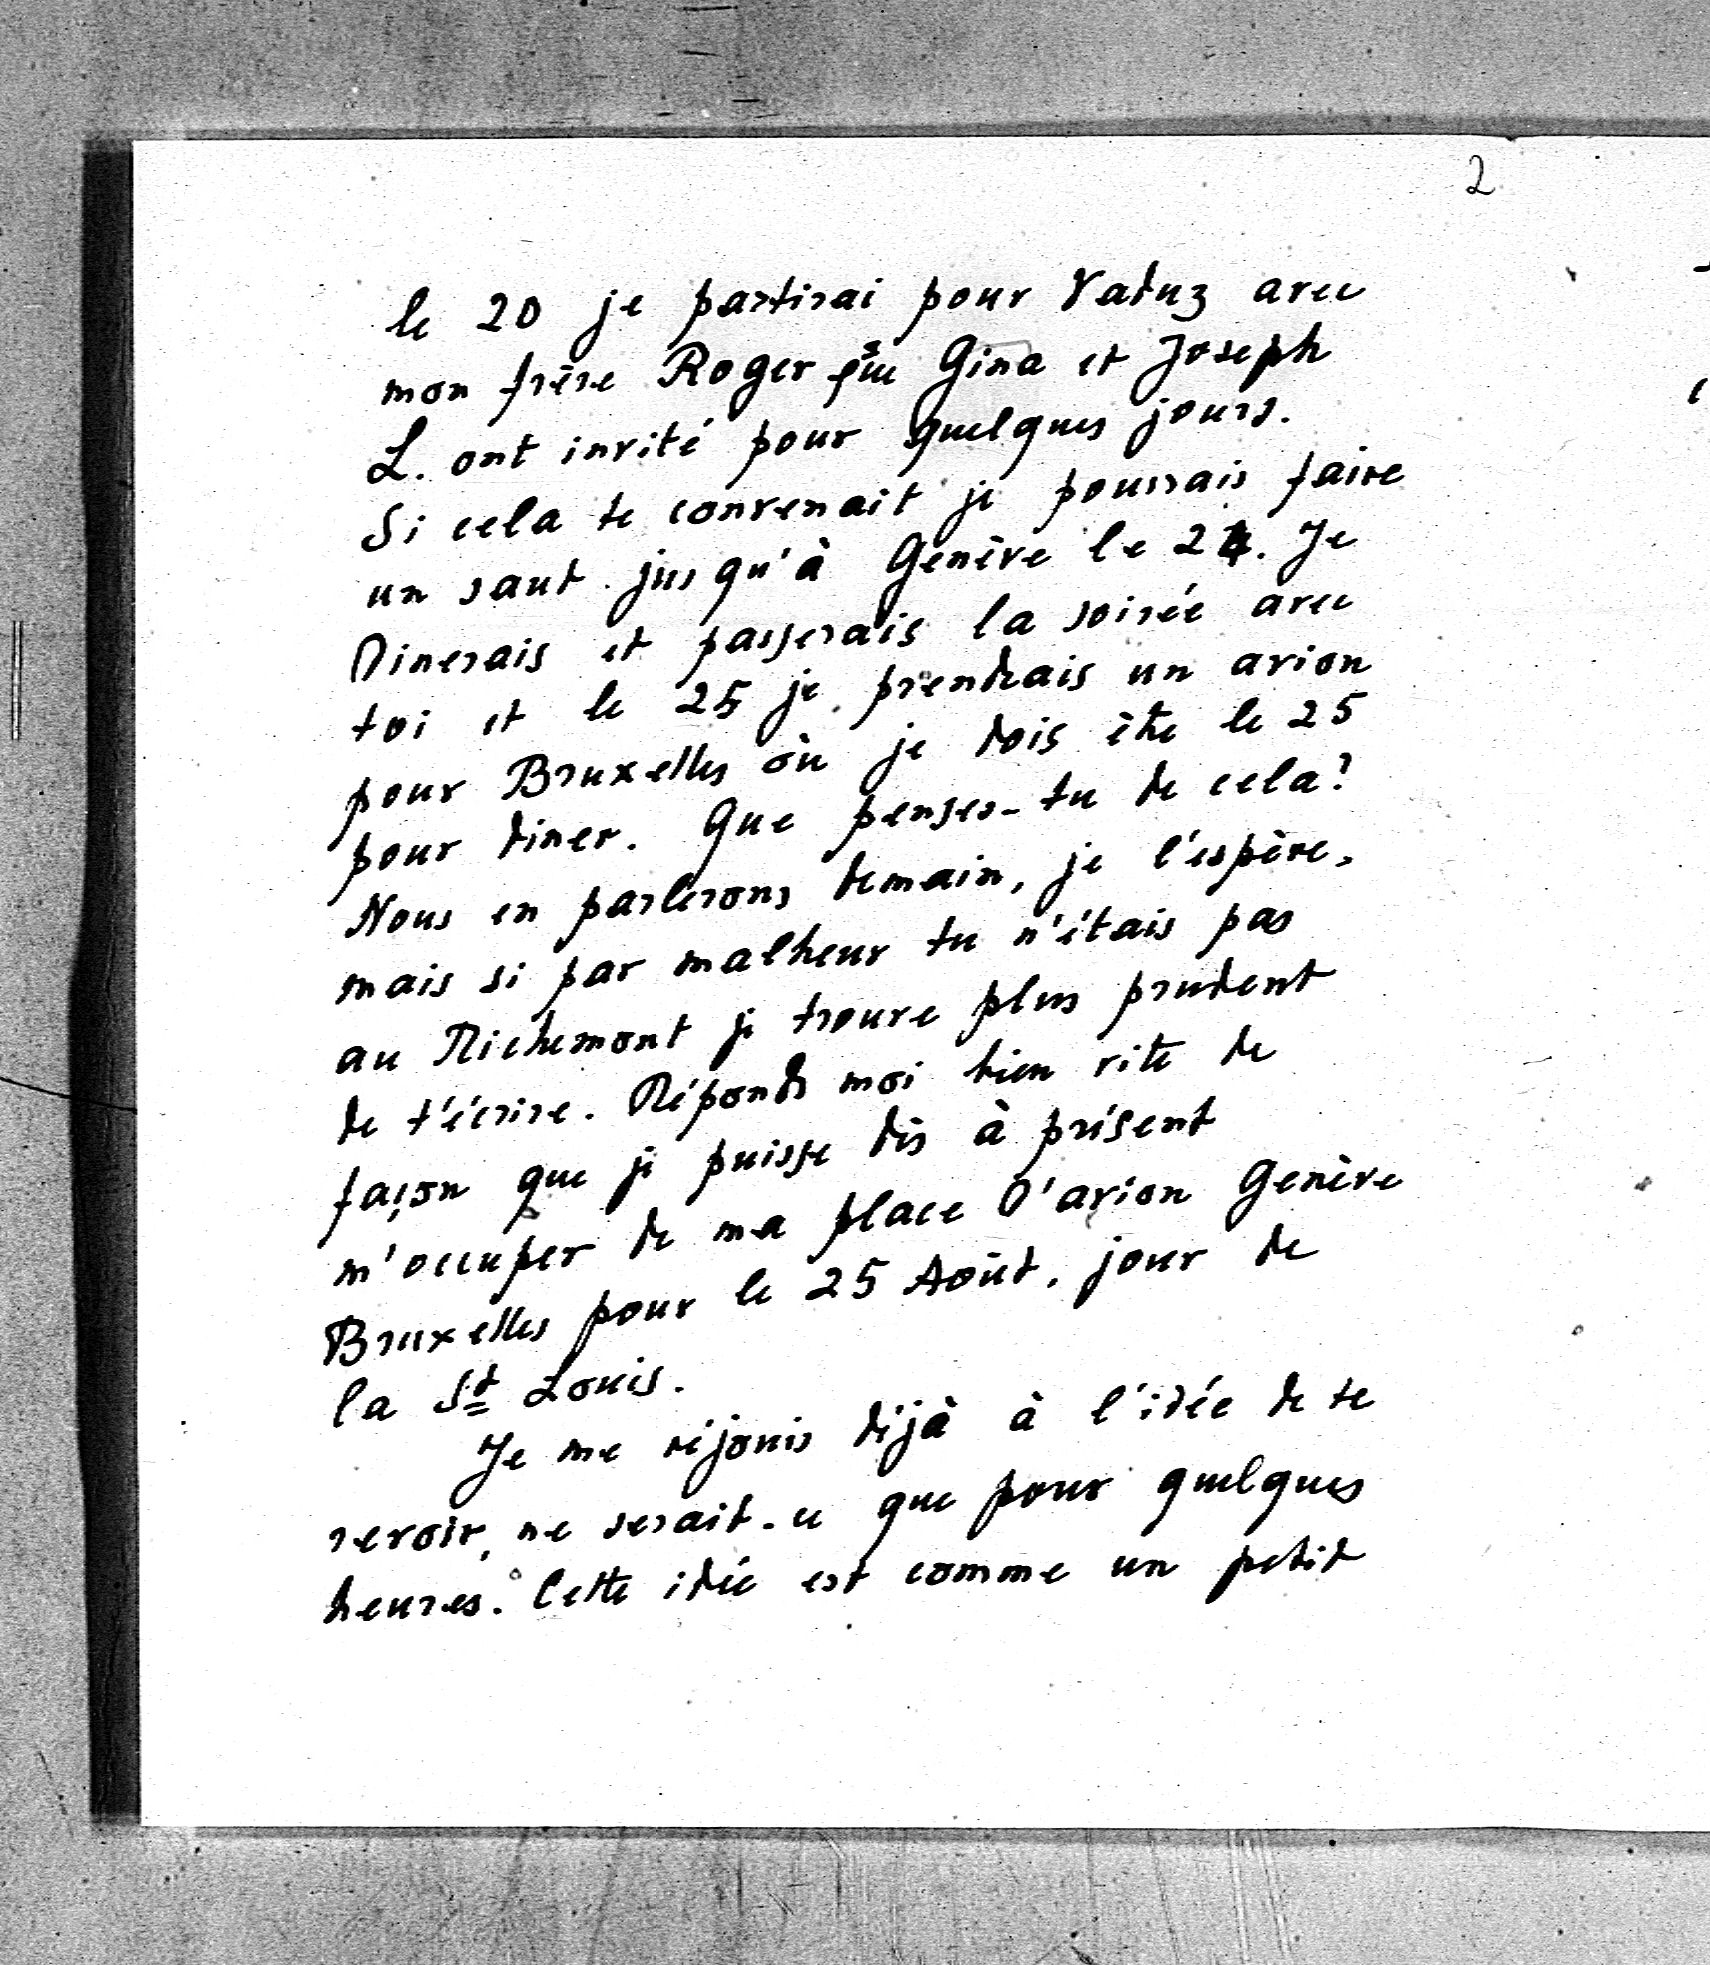 2
le 20 je partirai pour Vaduz avec
mon frère Roger que Gina et Joseph
L. ont invité pour quelques jours.
Si cela te convenait je pourrais faire
un saut jusqu'à Genève le 24. Je
Dinerais et passerais la soirée avec
toi et le 25 je prendrais un avion
pour Bruxelles où je dois être le 25
pour diner. Que penses-tu de cela?
Nous en parlerons demain, je l'espère,
mais si par malheur tu n'étais pas
au Richemont je trouve plus prudent
de t'écrire. Réponds moi bien vite de
façon que je puisse dès à présent
m'occuper de ma place d'avion Genève
Bruxelles pour le 25 Août, jour de
la St Louis.
Je me réjouis déjà à l'idée de te
revoir, ne serait-ce que pour quelques
heures. Cette idée est comme un petit